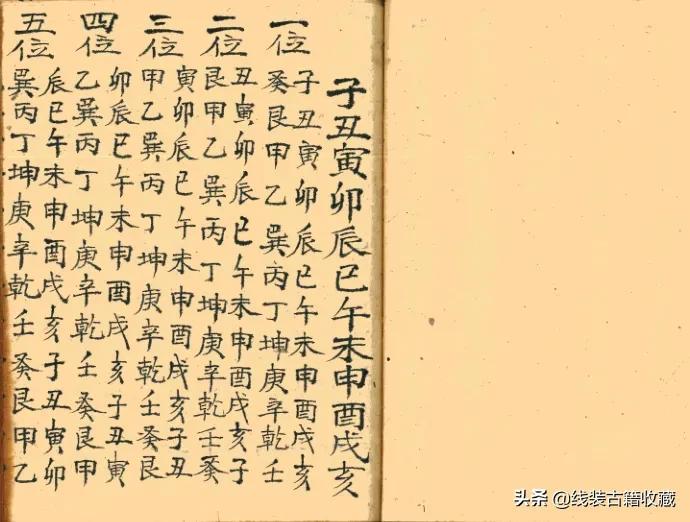 子丑寅卯辰巳午未申酉戌亥
一位
子丑寅卯辰巳午未申酉戌亥
癸艮甲乙巽丙丁坤庚辛乾壬
二位
丑寅卯辰巳午未申酉戌亥子
艮甲乙巽丙丁坤庚辛乾壬癸
三位
寅卯辰巳午未申酉戌亥子丑
甲乙巽丙丁坤庚辛乾壬癸艮
四位
卯辰巳午未申酉戌亥子丑寅
乙巽丙丁坤庚辛乾壬癸艮甲
五位
辰巳午未申酉戌亥子丑寅卯
巽丙丁坤庚辛乾壬癸艮甲乙
头条 @线装古籍收藏